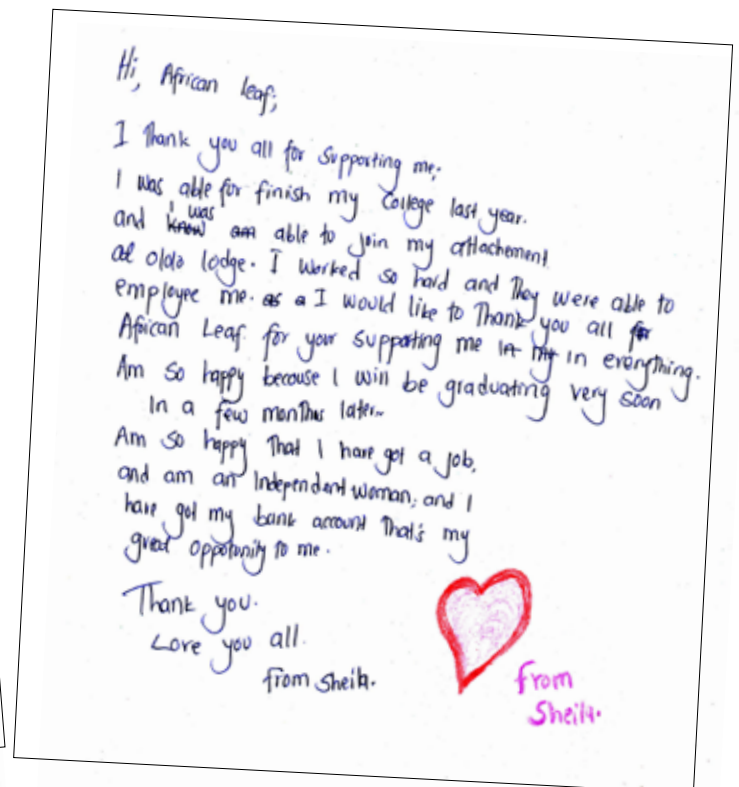 Hi, African Leaf;
I Thank you all for supporting me.
I was able for finish my College last year.
and I was able to join my attachement
at oldo lodge. I worked so hard and They were able to
employee me. I would like to Thank you all for
African Leaf for your supporting me in everything.
Am so happy because I will be graduating very soon
In a few months later.
Am so happy That I have got a job,
and am an Independent woman, and I
have got my bank account That's my
great oppotunity to me.
Thank you.
Love you all.
from Sheila.
from
Sheila.